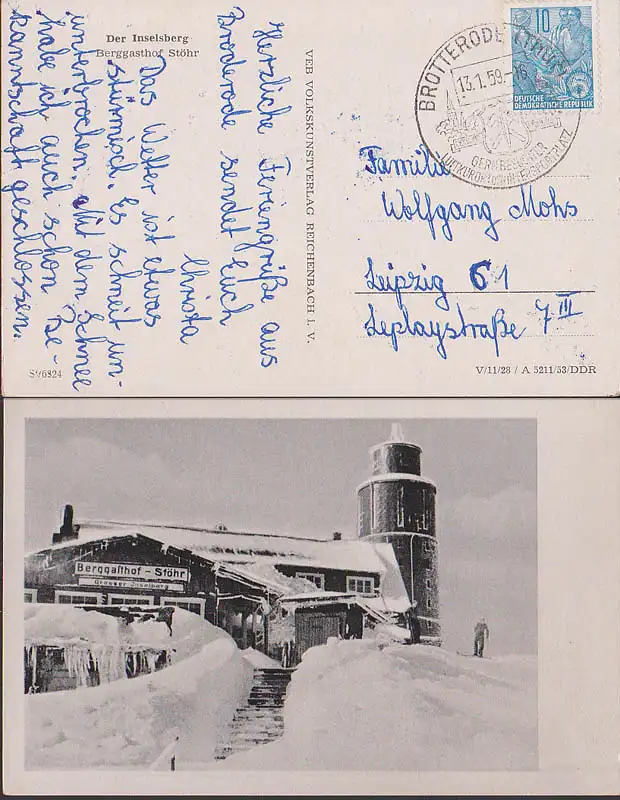 Der Inselsberg
Berggasthof Stöhr
Herzliche Feriengrüße aus
Broderode sendet Euch
Christa
Das Wetter ist etwas
stürmisch. Es schneit un-
unterbrochen. Mit dem Schnee
habe ich auch schon Be-
kanntschaft geschlossen.
S1/6824
VEB VOLKSKUNSTVERLAG REICHENBACH I. V.
BROTTERODE (THÜR)
13.1.59-16
10
DEUTSCHE
DEMOKRATISCHE REPUBLIK
Familie
Wolfgang Mohs
Leipzig C1
Leplaystraße 7 III
V/11/28 / A 5211/53/DDR
Berggasthof - Stöhr
Grosser Inselsberg